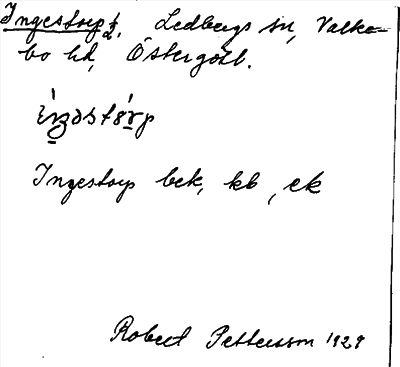 Ingestorp ½, Ledbergs sn, Valke-
bo hd, Östergötl.
Ingestorp bek, kb, ek
Robert Pettersson 1929